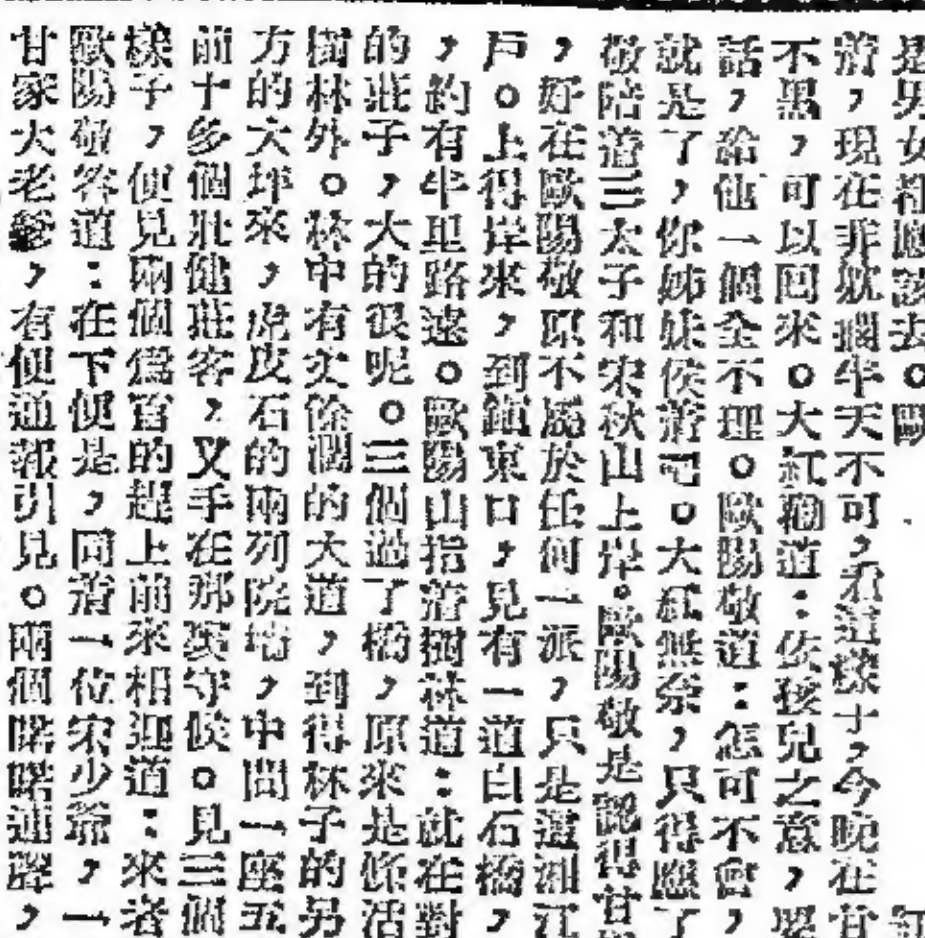 是男女都應該去。歐
前,現在非躭擱半天不可,看這樣子,今晚在甘
不黑,可以回來。大紅獅道:依孩兒之意,要
話,給他一個全不理。歐陽敬道:怎可不會,
就是了,你姊妹侯着吧。大紅無奈,只得應了
敬陪着三太子和宋秋山上岸。歐陽敬是認得甘
,好在歐陽敬原不屬於任何一派,只是這湘江
戶。上得岸來,到鎮東口,見有一道白石橋,
,約有半里路遠。歐陽山指着樹林道:就在對
的莊子,大的很呢。三個過了橋,原來是條活
樹林外。林中有丈餘濶的大道,到得林子的另
方的大坪來,虎皮石的兩列院墻,中間一座五
前十多個壯健莊客,叉手在那裏守候。見三個
樣子,便見兩個爲首的趕上前來相迎道:來者
歐陽敬答道:在下便是,同着一位宋少爺,一
甘家大老爹,有便通報引見。兩個喏喏連聲,